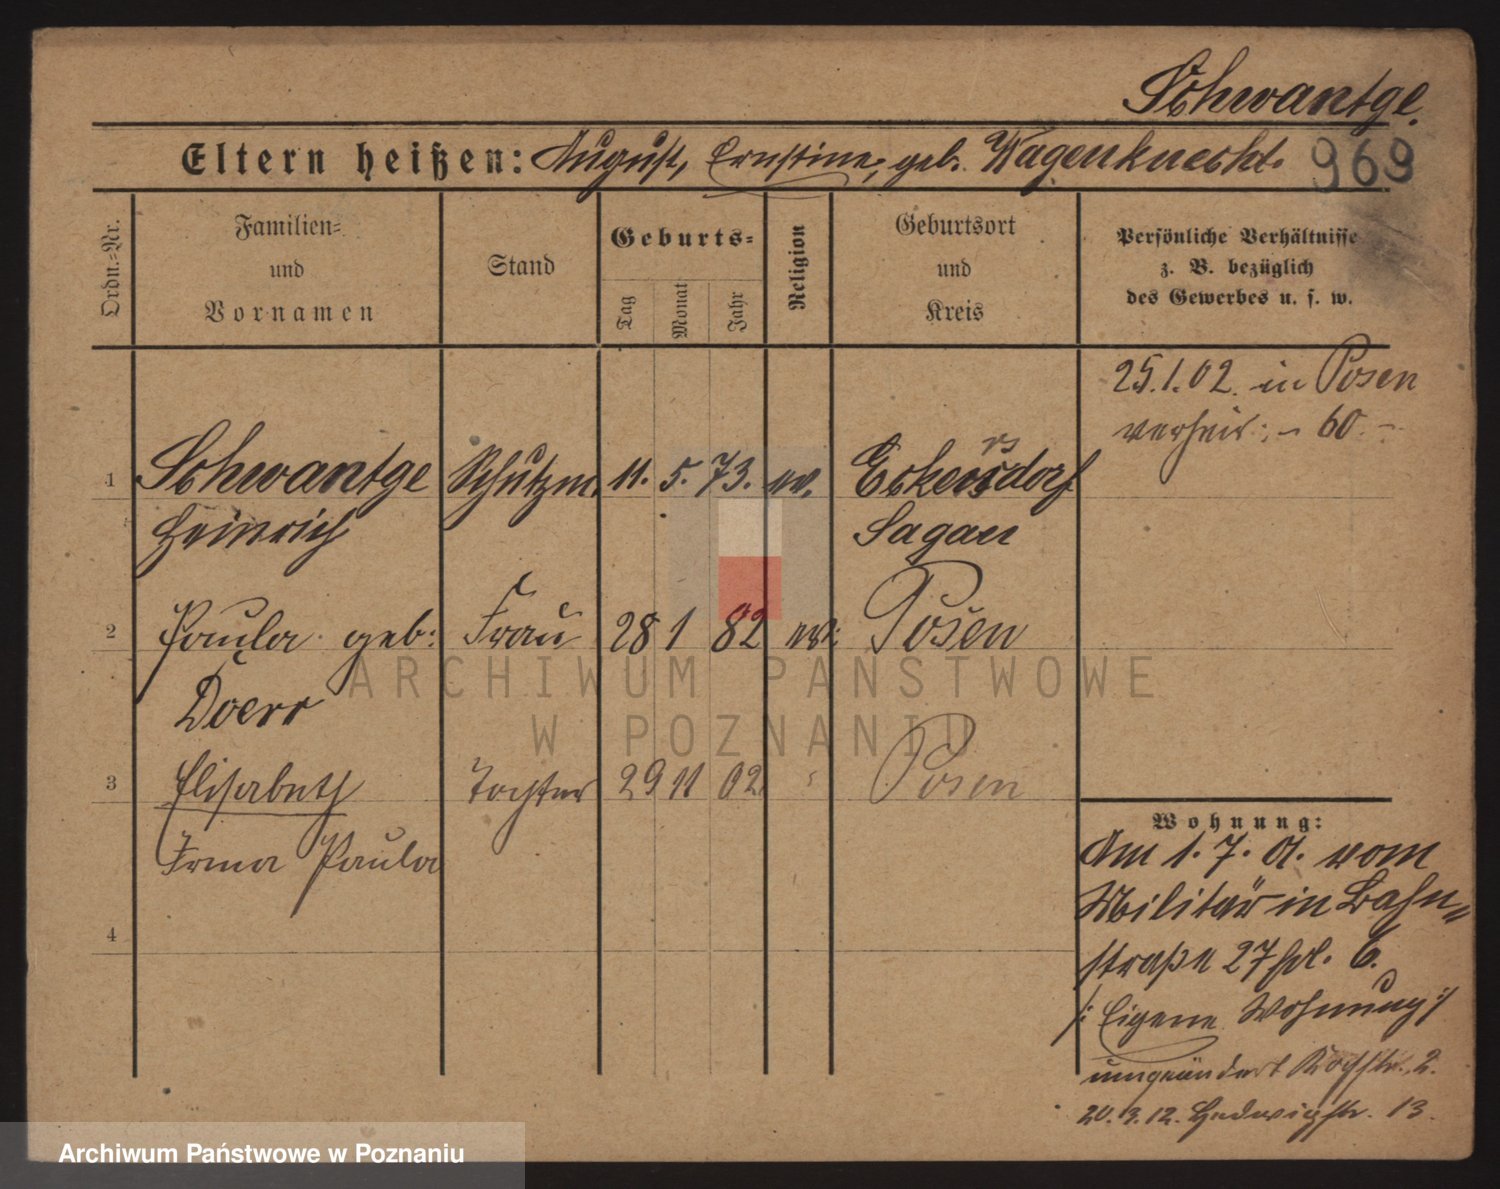 Schwantge.
Eltern heißen: August, Ernstine, geb. Wagenknecht. 969
Ordn.=Nr.
Familien=
und
Vornamen
Stand
Geburts=
Tag
Monat
Jahr
Religion
Geburtsort
und
Kreis
Persönliche Verhältnisse
z. B. bezüglich
des Gewerbes u. s. w.
25.1.02. in Posen
verheir. - 60. -
1 Schwantge Schutzm. 11. 5. 73. ev. Eckersdorf
rs
Heinrich Sagan
2 Paula geb: Frau 28 1 82 ev: Posen
Doerr
3 Elisabeth Tochter 29 11 02 Posen
Irma Paula
4
Wohnung:
Am 1. 7. 01. vom
Militär in Bahn=
straße 27 6.
/: Eigene Wohnung :/
umgeändert 2.
20.3.12. Hedwigstr. 13.
ARCHIWUM PAŃSTWOWE
W POZNANIU
Archiwum Państwowe w Poznaniu